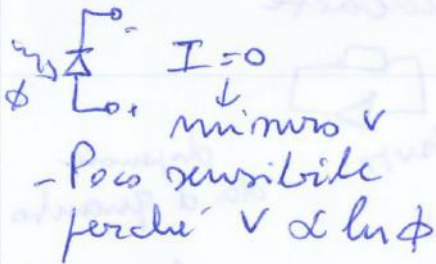 I=0
↓
misuro V
- Poco sensibile
perché V ∝ ln ϕ
ϕ